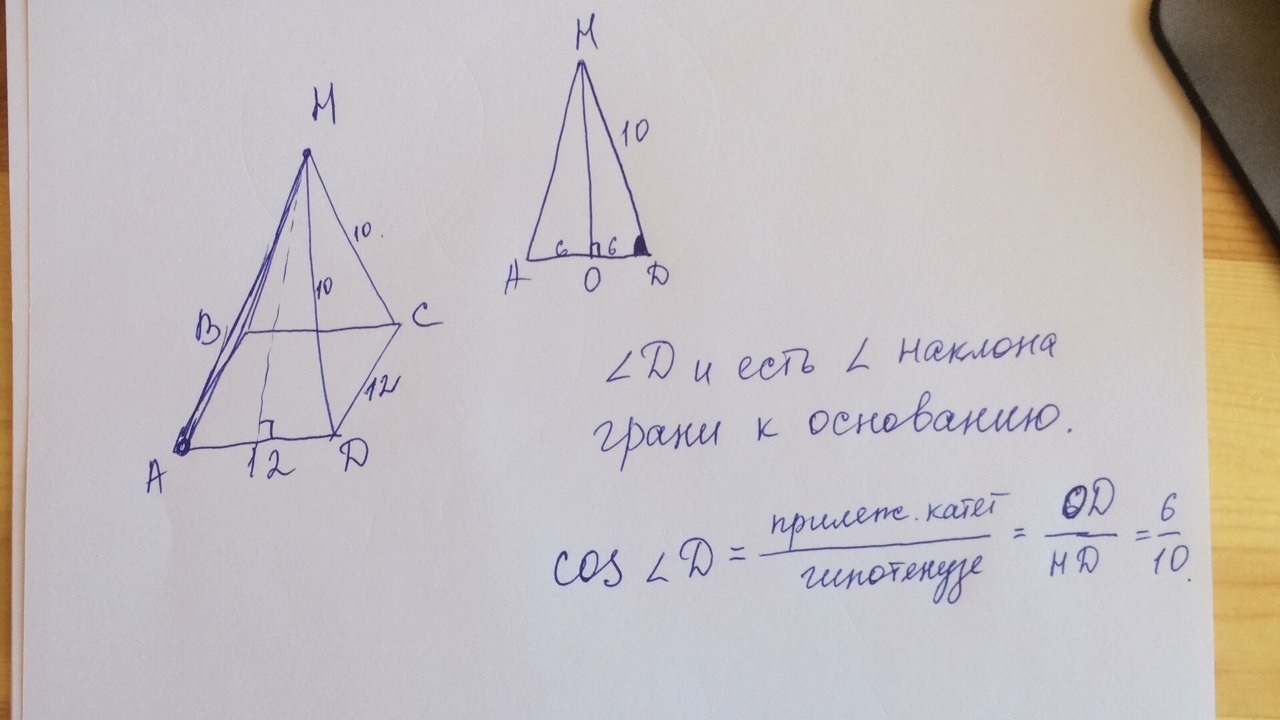 М
10
10
B
C
12
A
12
D
М
10
6
6
A
O
D
∠D и есть ∠ наклона
грани к основанию.
cos ∠D = прилеж. катет / гипотенузе = OD / МD = 6 / 10.